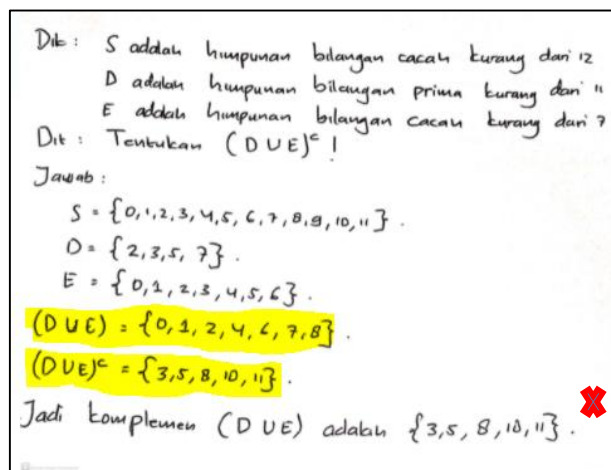 Dik : S adalah himpunan bilangan cacah kurang dari 12
D adalah himpunan bilangan prima kurang dari 11
E adalah himpunan bilangan cacah kurang dari 7
Dit : Tentukan (D ∪ E)ᶜ !
Jawab :
S = {0, 1, 2, 3, 4, 5, 6, 7, 8, 9, 10, 11} .
D = {2, 3, 5, 7} .
E = {0, 1, 2, 3, 4, 5, 6} .
(D ∪ E) = {0, 1, 2, 4, 6, 7, 8} .
(D ∪ E)ᶜ = {3, 5, 8, 10, 11} .
Jadi komplemen (D ∪ E) adalah {3, 5, 8, 10, 11} .